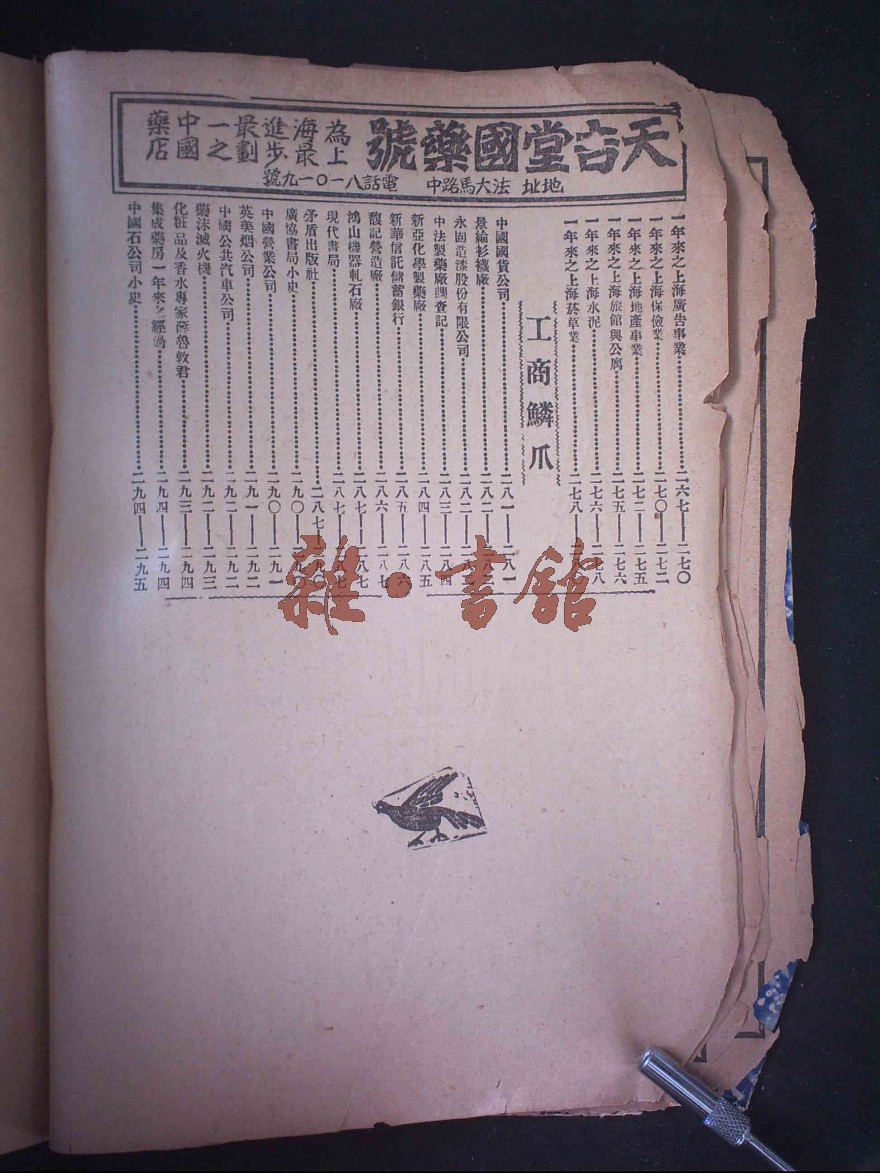 天吉堂國藥號
為上
海最
進步
最劃
一之
中國
藥店
地址 法大馬路中 電話八一〇一九號
一年來之上海廣告事業 二六七——二七〇
一年來之上海保險業 二七〇——二七二
一年來之上海地產事業 二七二——二七五
一年來之上海旅館與公寓 二七五——二七六
一年來之上海水泥 二七六——二七八
一年來之上海菸草業 二七八——二八〇
工商鱗爪
中國國貨公司 二八一——二八一
景綸衫襪廠 二八二——二八二
永固造漆股份有限公司 二八二——二八三
中法製藥廠調查記 二八三——二八四
新亞化學製藥廠 二八四——二八五
新華信託儲蓄銀行 二八五——二八六
馥記營造廠 二八六——二八七
鴻山機器軋石廠 二八七——二八七
現代書局 二八七——二八七
矛盾出版社 二八七——二九〇
廣協書局小史 二九〇——二九〇
中國營業公司 二九〇——二九一
英美烟公司 二九一——二九二
中國公共汽車公司 二九二——二九二
藥沫滅火機 二九二——二九三
化粧品及香水專家薛魯敦君 二九三——二九四
集成藥房一年來之經過 二九四——二九四
中國石公司小史 二九四——二九五
雜·書館